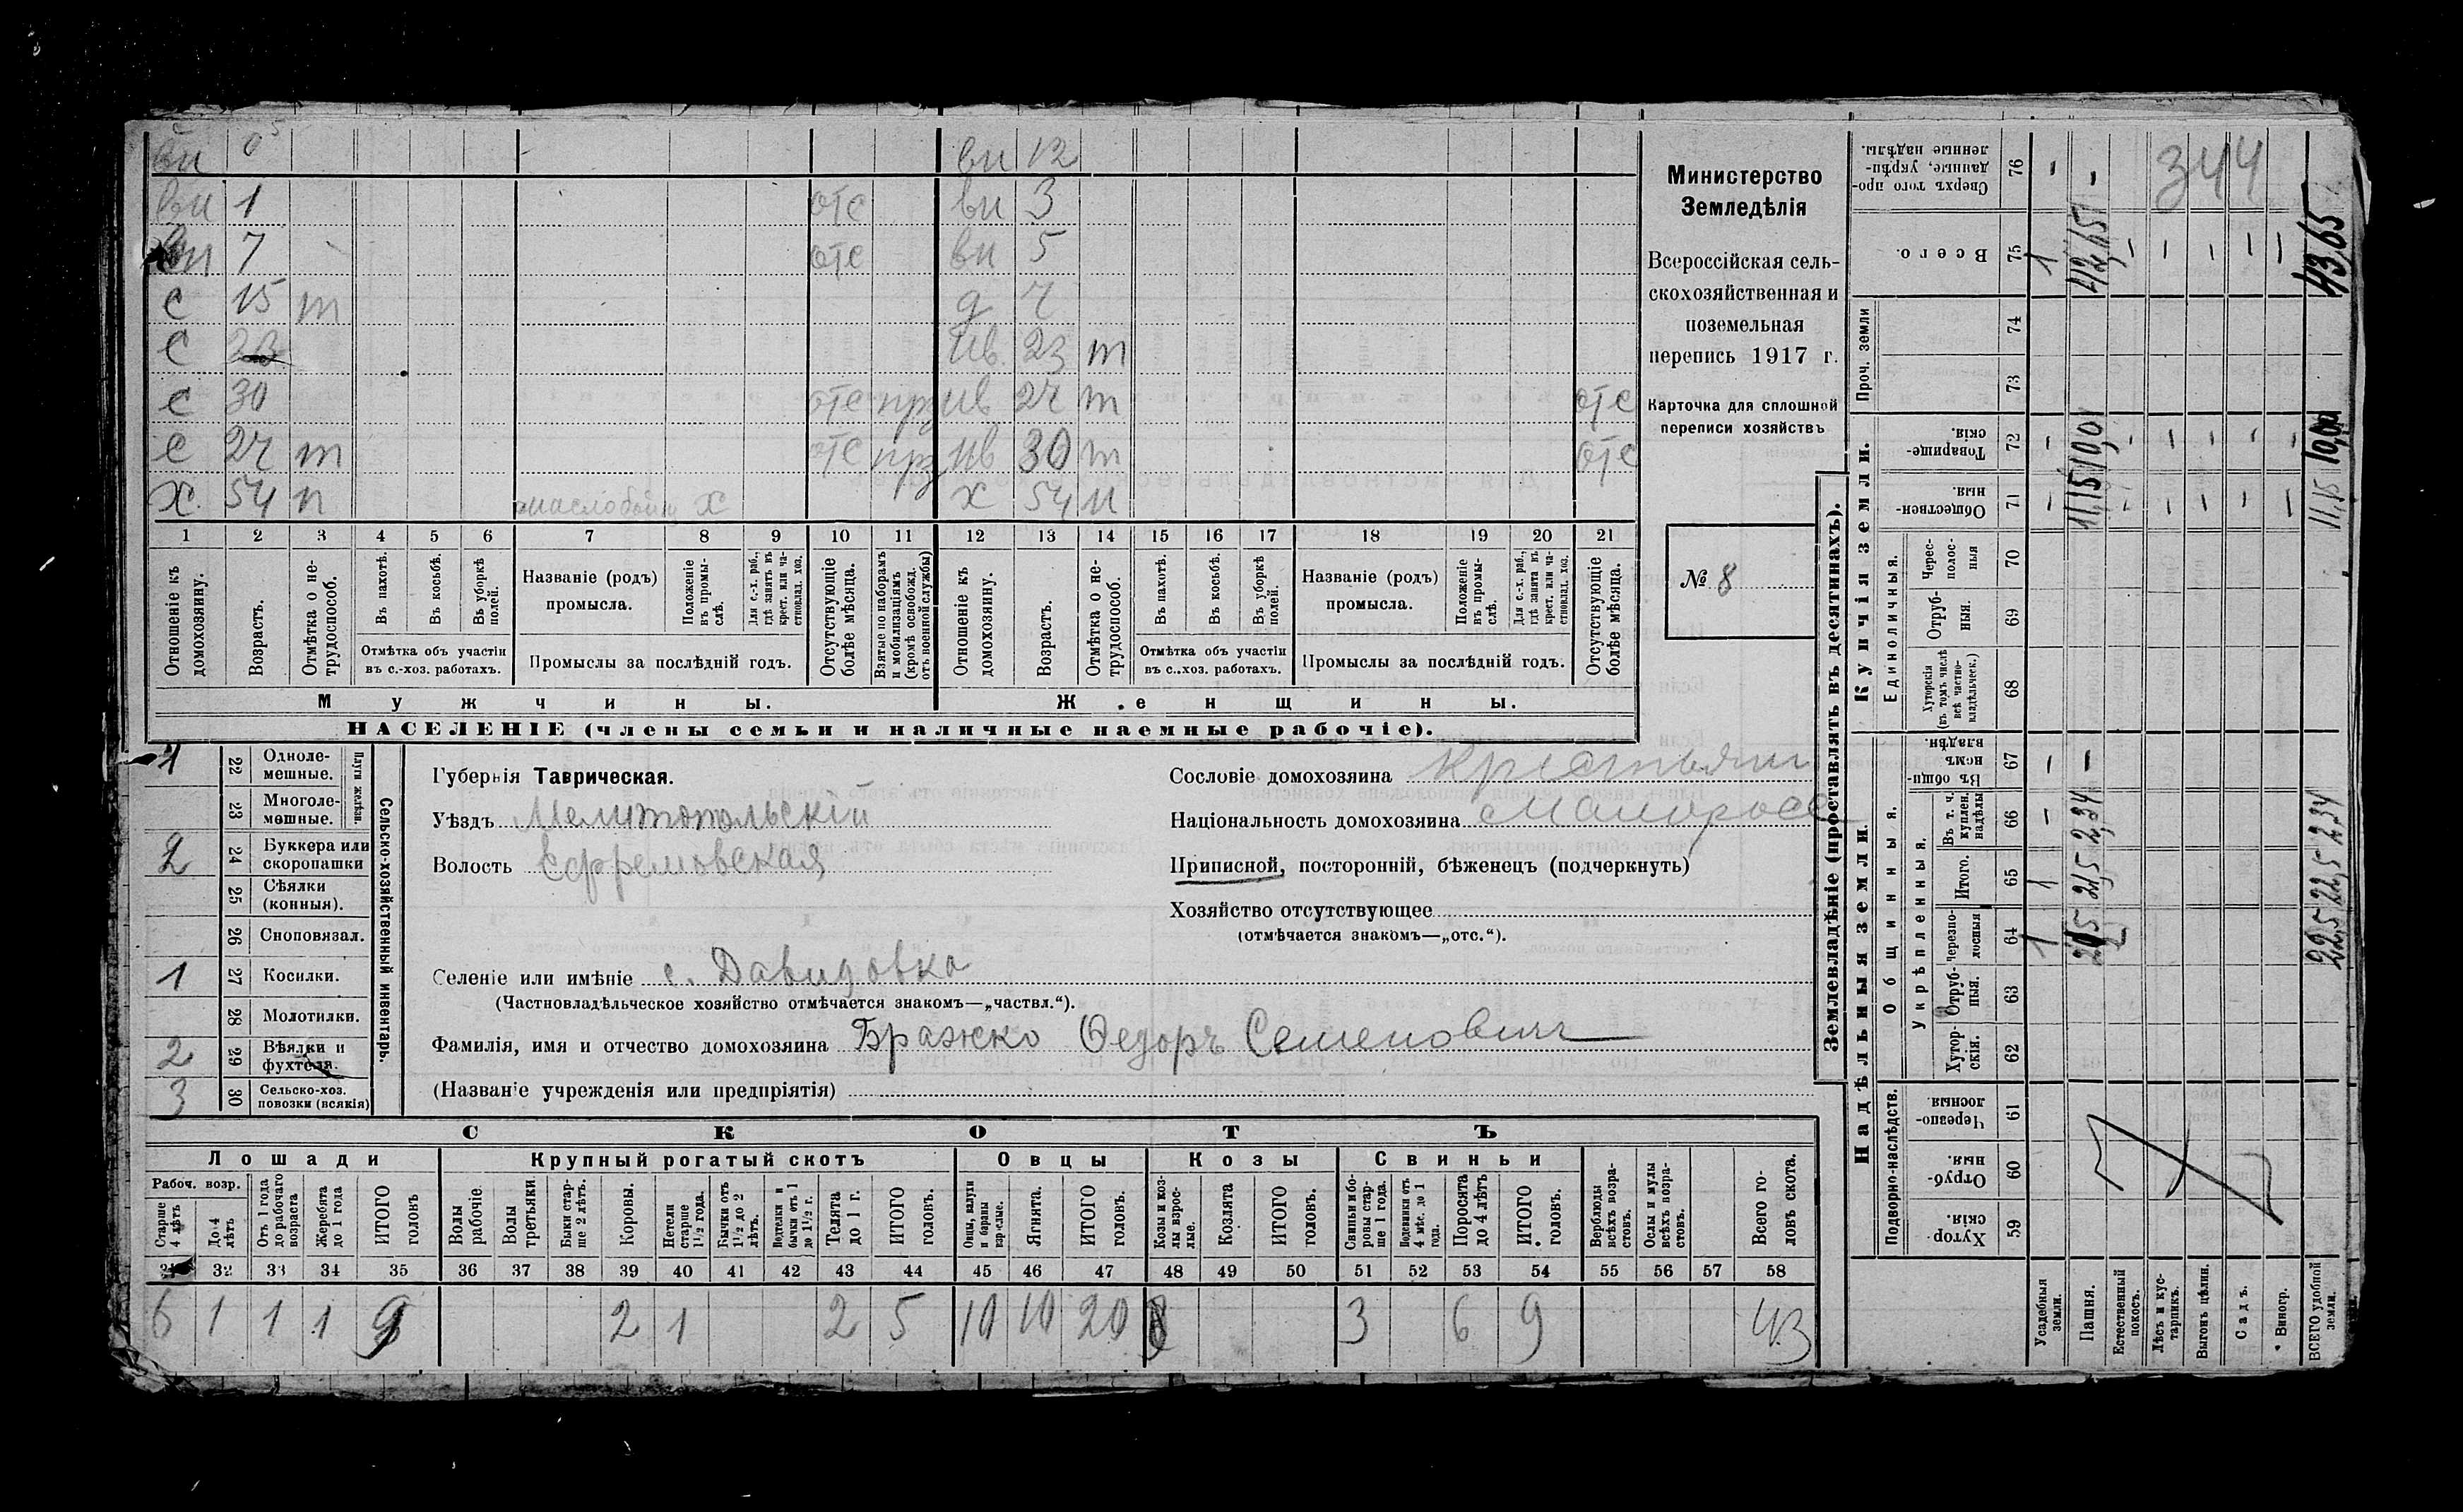 ви 0⁵ ви 12
ви 1 отс ви 3
ви 7 отс ви 5
с 15 т д 7
с ив. 23 т
с 30 отс прз ив 27 т отс
с 27 т отс прз ив 30 т отс
х. 54 п маслобойн х х 54 п
1 2 3 4 5 6 7 8 9 10 11 12 13 14 15 16 17 18 19 20 21
Отношеніе къ домохозяину.
Возрастъ.
Отмѣтка о не-трудоспособ.
Въ пахотѣ.
Въ косьбѣ.
Въ уборкѣ полей.
Отмѣтка объ участіи въ с.-хоз. работахъ.
Названіе (родъ) промысла.
Положеніе въ промы-слѣ.
Для с.-х. раб., гдѣ занятъ въ крест. или ча-стновлад. хоз.
Промыслы за послѣдній годъ.
Отсутствующіе болѣе мѣсяца.
Взятые по наборамъ и мобилизаціямъ (кромѣ освобожд. отъ военной службы)
Отношеніе къ домохозяину.
Возрастъ.
Отмѣтка о не-трудоспособ.
Въ пахотѣ.
Въ косьбѣ.
Въ уборкѣ полей.
Отмѣтка объ участіи въ с..хоз. работахъ.
Названіе (родъ) промысла.
Положеніе въ промы-слѣ.
Для с.-х. раб., гдѣ занята въ крест. или ча-стновлад. хоз.
Промыслы за послѣдній годъ.
Отсутствующіе болѣе мѣсяца.
Мужчины. Женщины.
НАСЕЛЕНІЕ (члены семьи и наличные наемные рабочіе).
Министерство
Земледѣлія
Всероссійская сель-
скохозяйственная и
поземельная
перепись 1917 г.
Карточка для сплошной
переписи хозяйствъ
№ 8
1 22 Одноле-мешные.
23 Многоле-мешные.
Плуги желѣзн.
2 24 Буккера или скоропашки
25 Сѣялки (конныя).
26 Сноповязал.
1 27 Косилки.
28 Молотилки.
2 29 Вѣялки и фухтеля.
3 30 Сельско-хоз. повозки (всякія)
Сельско-хозяйственный инвентарь.
Губернія Таврическая.
Уѣздъ Мелитопольскій
Волость Ефремовская
Сословіе домохозяина Крестьянин
Національность домохозяина Малоросс
Приписной, посторонній, бѣженецъ (подчеркнуть)
Хозяйство отсутствующее
(отмѣчается знакомъ—„отс.“).
Селеніе или имѣніе с. Давидовка
(Частновладѣльческое хозяйство отмѣчается знакомъ—„частвл.“).
Фамилія, имя и отчество домохозяина Бражко Ѳедоръ Семенович
(Названіе учрежденія или предпріятія)
СКОТЪ
Лошади Крупный рогатый скотъ Овцы Козы Свиньи
Рабоч. возр.
Старше 4 лѣтъ
До 4 лѣтъ
Отъ 1 года до рабочаго возраста
Жеребята до 1 года
ИТОГО головъ
Волы рабочіе.
Волы третьяки.
Быки стар-ше 2 лѣтъ.
Коровы.
Нетели старше 1½ года.
Бычки отъ 1½ до 2 лѣтъ.
Телки и бычки отъ 1 до 1½ г.
Телята до 1 г.
ИТОГО головъ.
Овцы, валухи и бараны взрослые.
Ягнята.
ИТОГО головъ.
Козы и коз-лы взрос-лые.
Козлята
ИТОГО головъ.
Свиньи и бо-ровы стар-ше 1 года.
Подсвинки отъ 4 мѣс. до 1 года.
Поросята до 4 лѣтъ
ИТОГО головъ.
Верблюды всѣхъ возра-стовъ.
Ослы и мулы всѣхъ возра-стовъ.
Всего го-ловъ скота.
32 33 34 35 36 37 38 39 40 41 42 43 44 45 46 47 48 49 50 51 52 53 54 55 56 57 58
6 1 1 1 9 2 1 2 5 10 10 20 3 6 9 43
Землевладѣніе (проставлять въ десятинахъ).
Надѣльныя земли. Купчія земли. Проч. земли
Подворно-наслѣдств. Общинныя. Укрѣпленныя. Единоличныя.
Сверхъ того про-данные, укрѣп-ленные надѣлы. 76 - - 344
Всего. 75 1 42,65 43,65
74
73
Товарище-скія. 72 10,01
Обществен-ныя. 71 11,15 11,15
Черес-полос-ныя 70
Отруб-ныя. 69
Хуторскія (въ томъ числѣ всѣ частно-владѣльческ.) 68
Въ общи-номъ владѣн. 67 - -
Въ т. ч. куплен. надѣлы 66 - 2,34 234
Итого. 65 1 21,5 22,5
Черезпо-лосныя 64 1 22,5
Отруб-ныя. 63
Хутор-скія. 62
Черезпо-лосныя 61
Отруб-ныя. 60
Хутор-скія. 59
Усадебныя земли.
Пашня.
Естественный покосъ.
Лѣсъ и кус-тарникъ.
Выгонъ цѣлин.
Садъ.
Виногр.
ВСЕГО удобной земли.